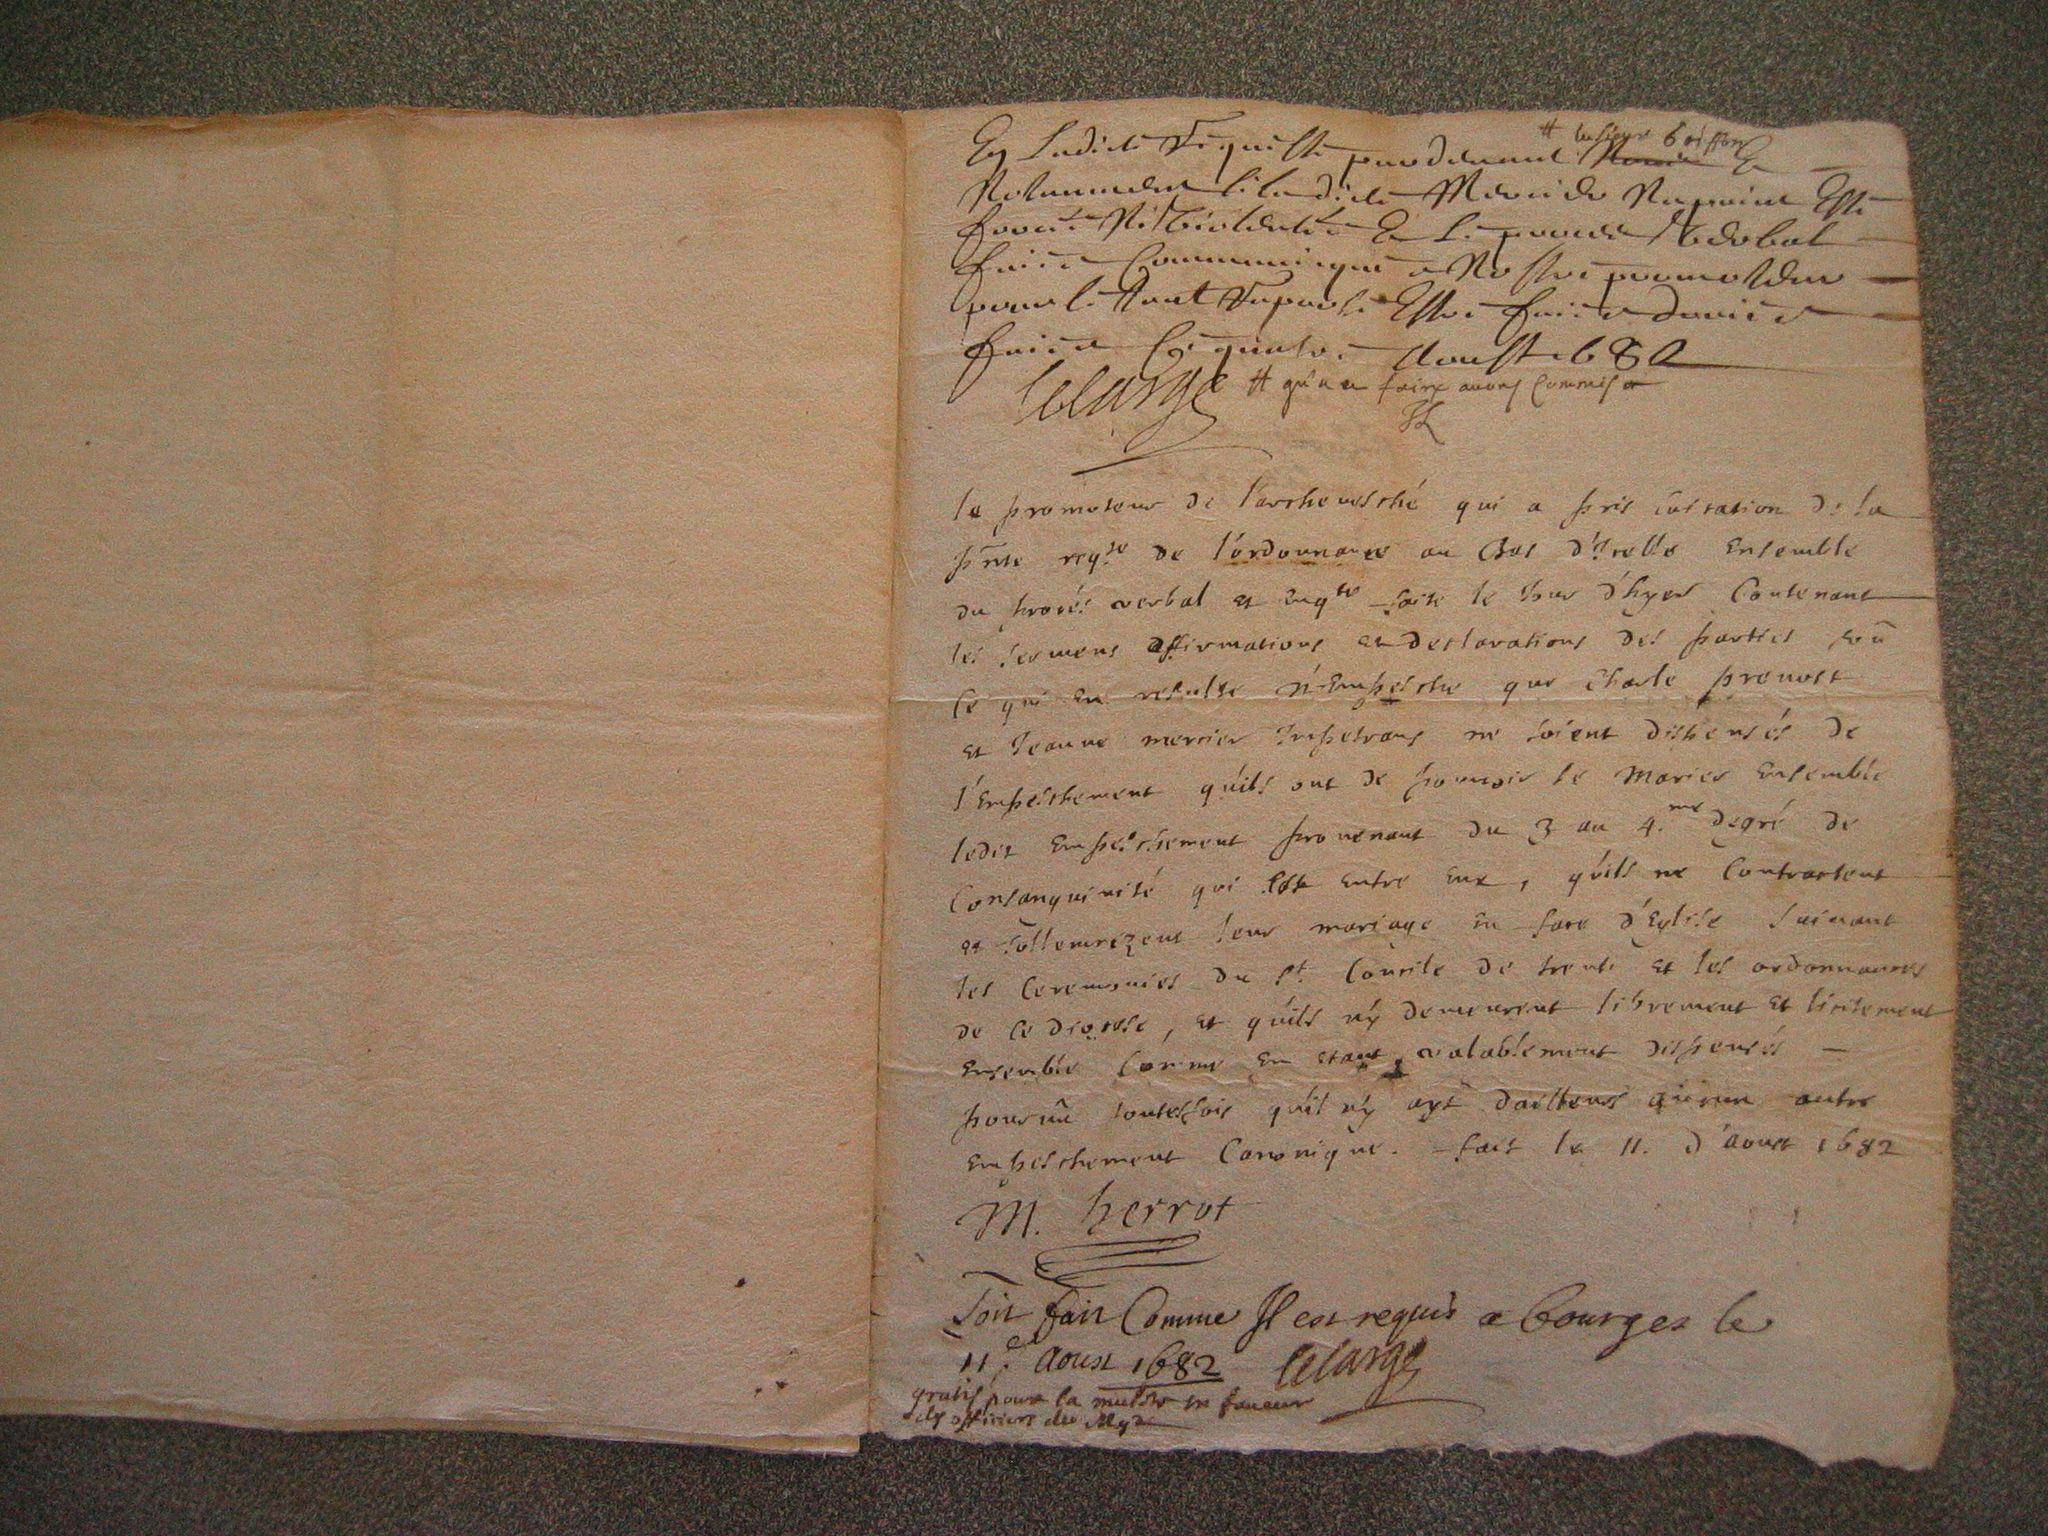 En ladicte Requeste pardevant # le sieur brisson
Notamment si ladicte Mercier Na point Esté
forcée Ni violentée Et le proces Verbal
faict Communiqué a Nostre promoteur
pour le tout Rapporté Estre faict droict
faict Ce quatre Aoust 1682
lelarge # qu'a ce faire avons commis
le promoteur de l'archevesché qui a pris
pnte reqte de l'ordonnance au bas d'icelle Ensemble
du procés verbal et enqte faite le Jour d'hyer Contenant
les sermens affirmations et declarations des parties
Ce qui en resulte N'Empesche que Charle prevost
et Jeanne mercier Impetrans ne soient dispensés de
l'Empeschement qu'ils ont de pouvoir se Marier Ensemble
ledit Empeschement provenant du 3 au 4.me degré de
Consanguinité qui Est entre eux, qu'ils ne Contractent
et sollemnizent leur mariage en face d'Eglise suivant
les Ceremonies du St. Concile de trente et les ordonnances
de ce diocese, et qu'ils n'y demeurent librement et licitement
Ensemble Comme en etant valablement dispensés —
pourvû toutesfois qu'il n'y ayt d'ailleurs aucun autre
empeschement Canonique. fait le 11. d'aoust 1682
M. perrot
Soit fait Comme Il est requis a bourges le
11.e Aoust 1682 lelarge
gratis pour la en faveur